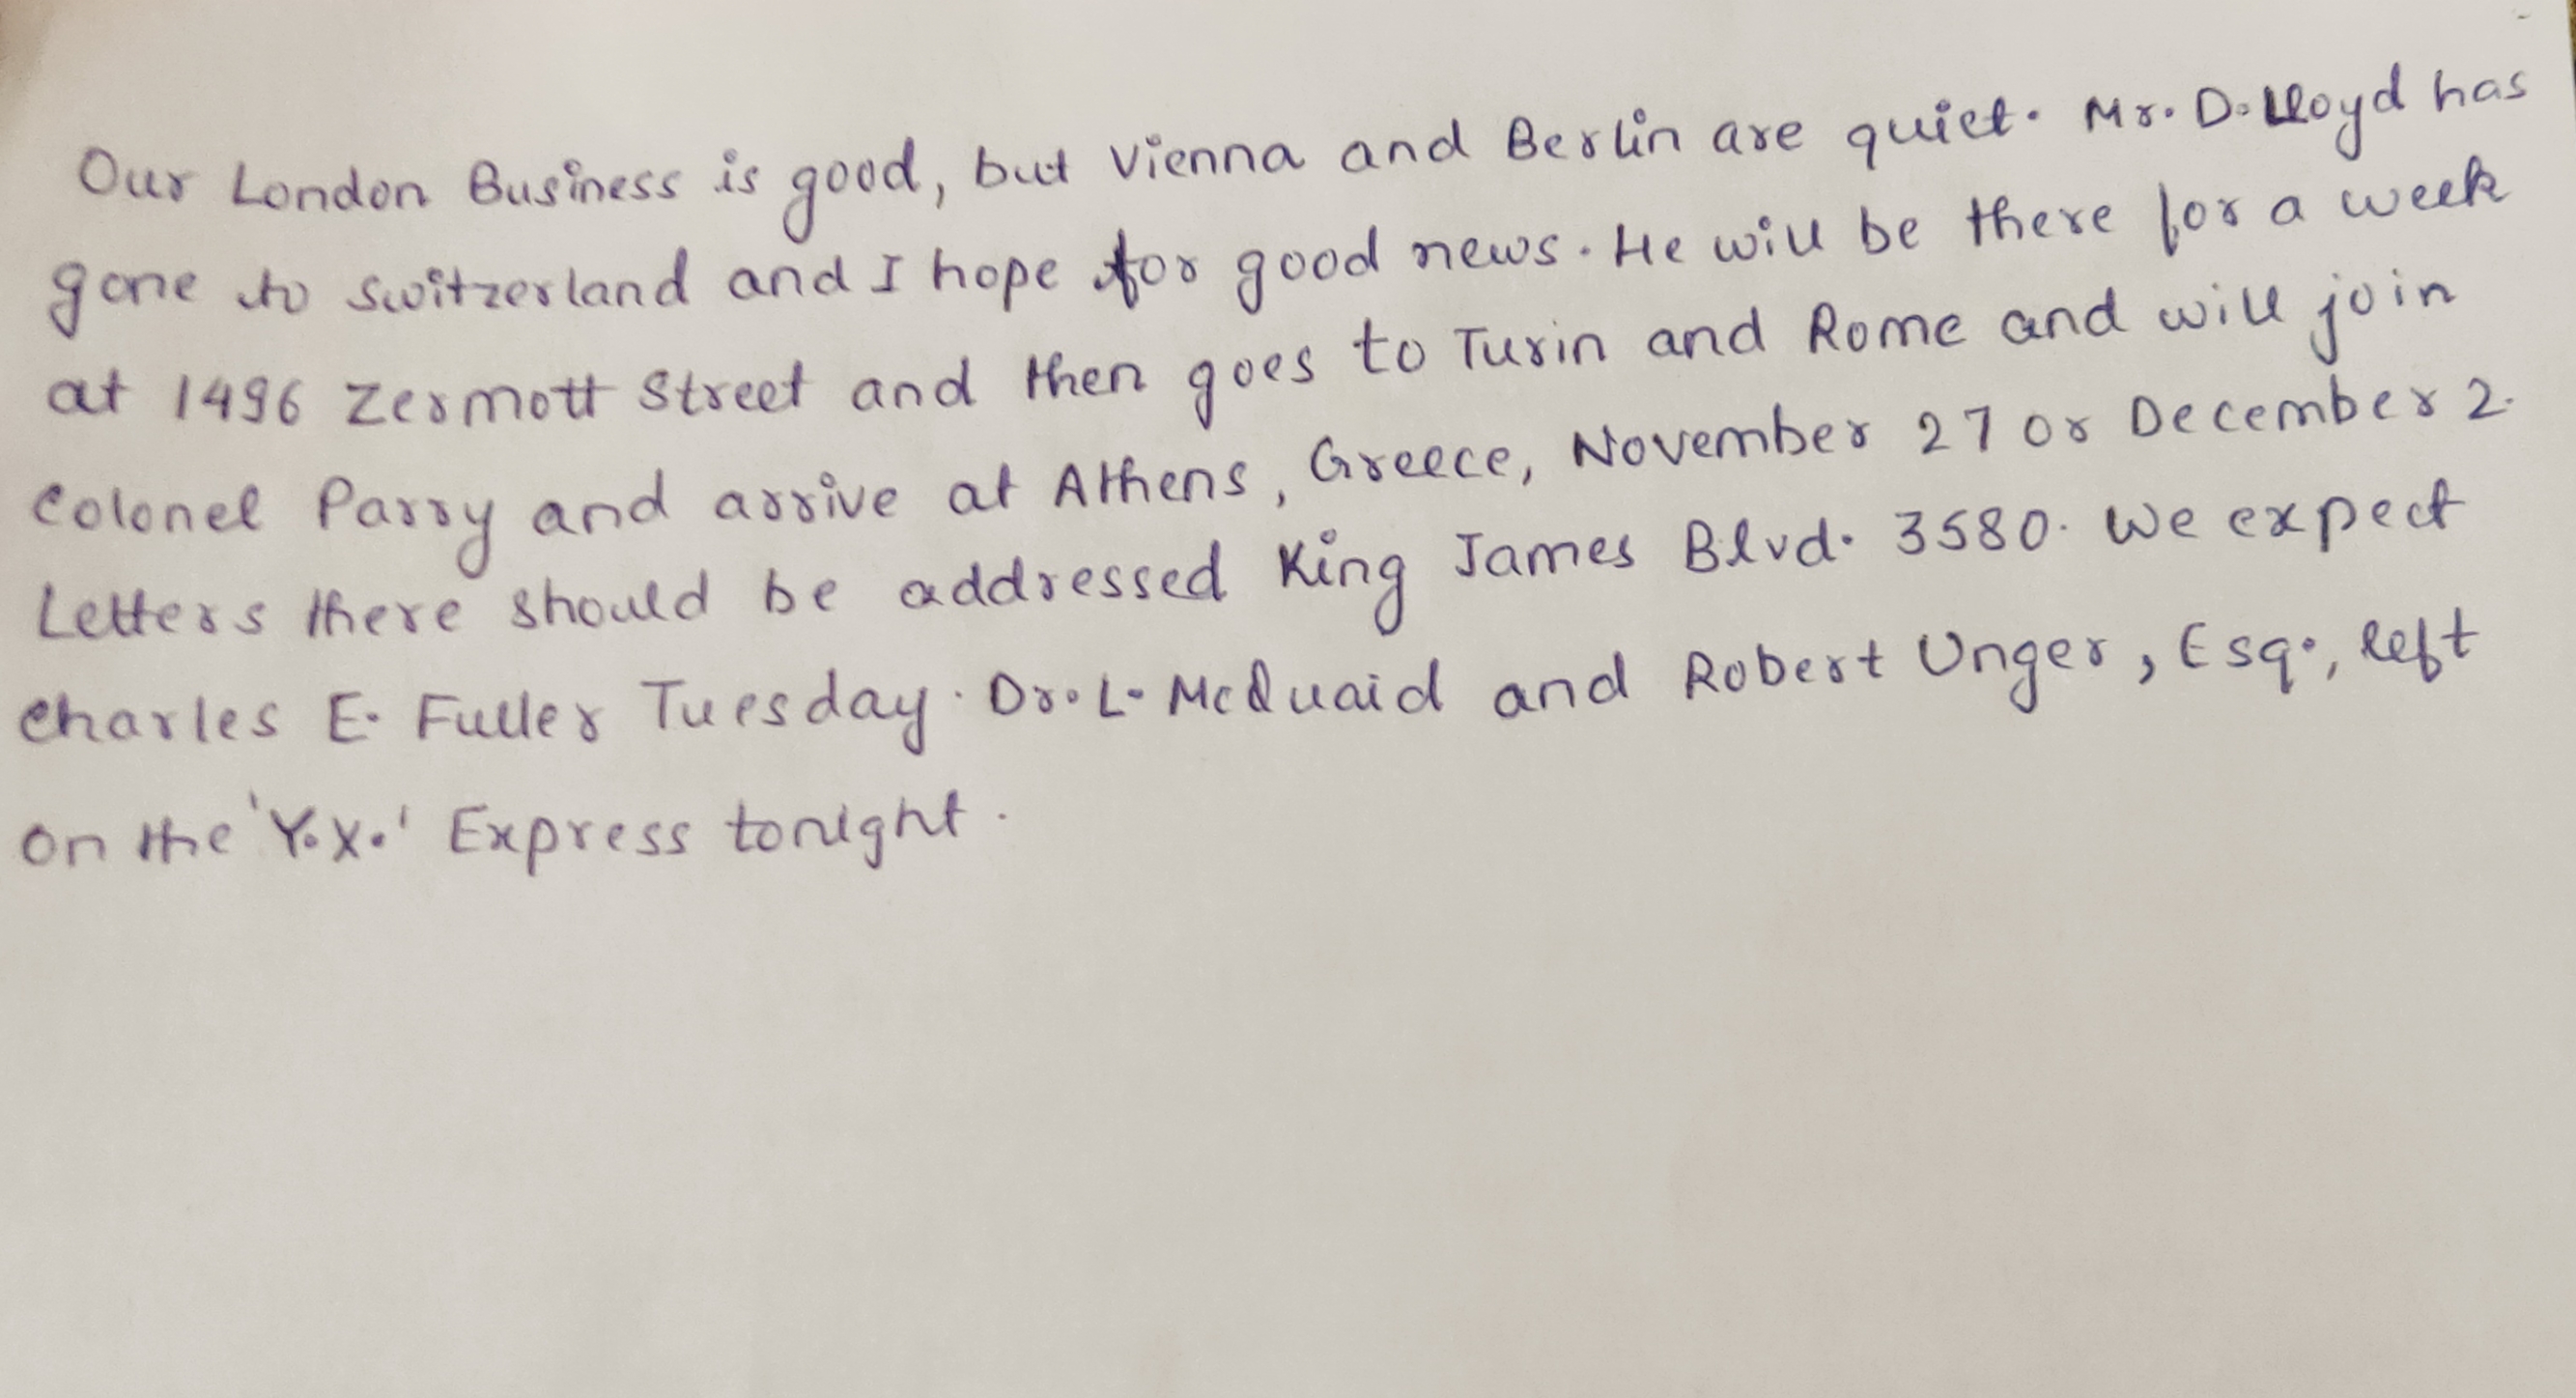 Our London Business is good, but Vienna and Berlin are quiet. Mr. D. Lloyd has
gone to Switzerland and I hope for good news. He will be there for a week
at 1496 Zermott Street and then goes to Turin and Rome and will join
Colonel Parry and arrive at Athens, Greece, November 27 or December 2.
Letters there should be addressed King James Blvd. 3580. We expect
Charles E. Fuller Tuesday. Dr. L. McQuaid and Robert Unger, Esq., left
on the 'Y.X.' Express tonight.